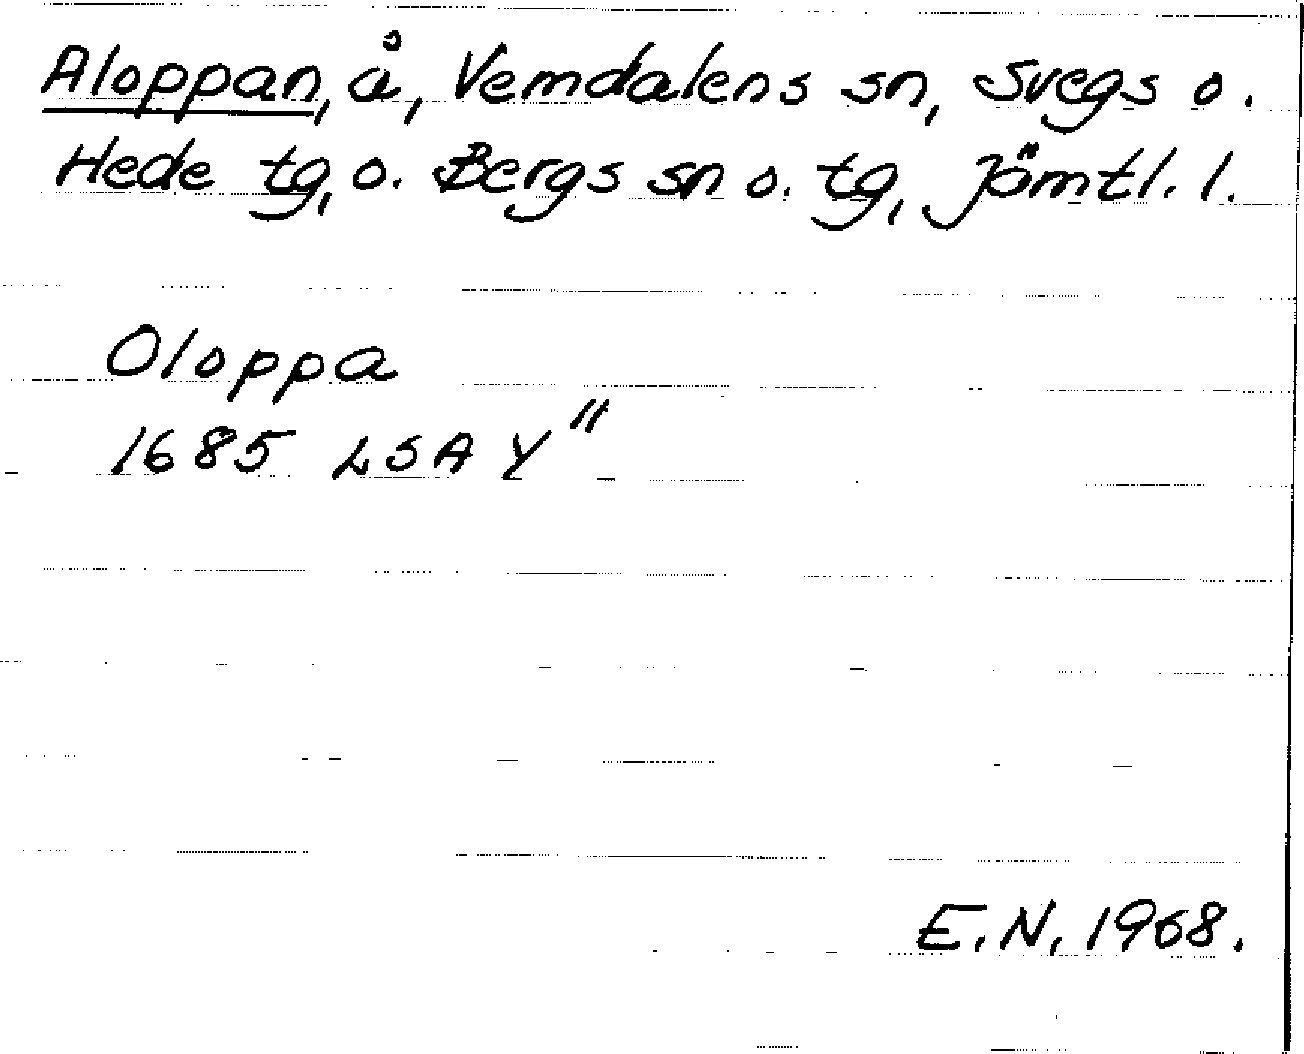 Aloppan, å, Vemdalens sn, Svegs o.
Hede tg, o. Bergs sn o. tg, Jämtl. l.
Oloppa
1685 LSA Y"
E.N. 1968.